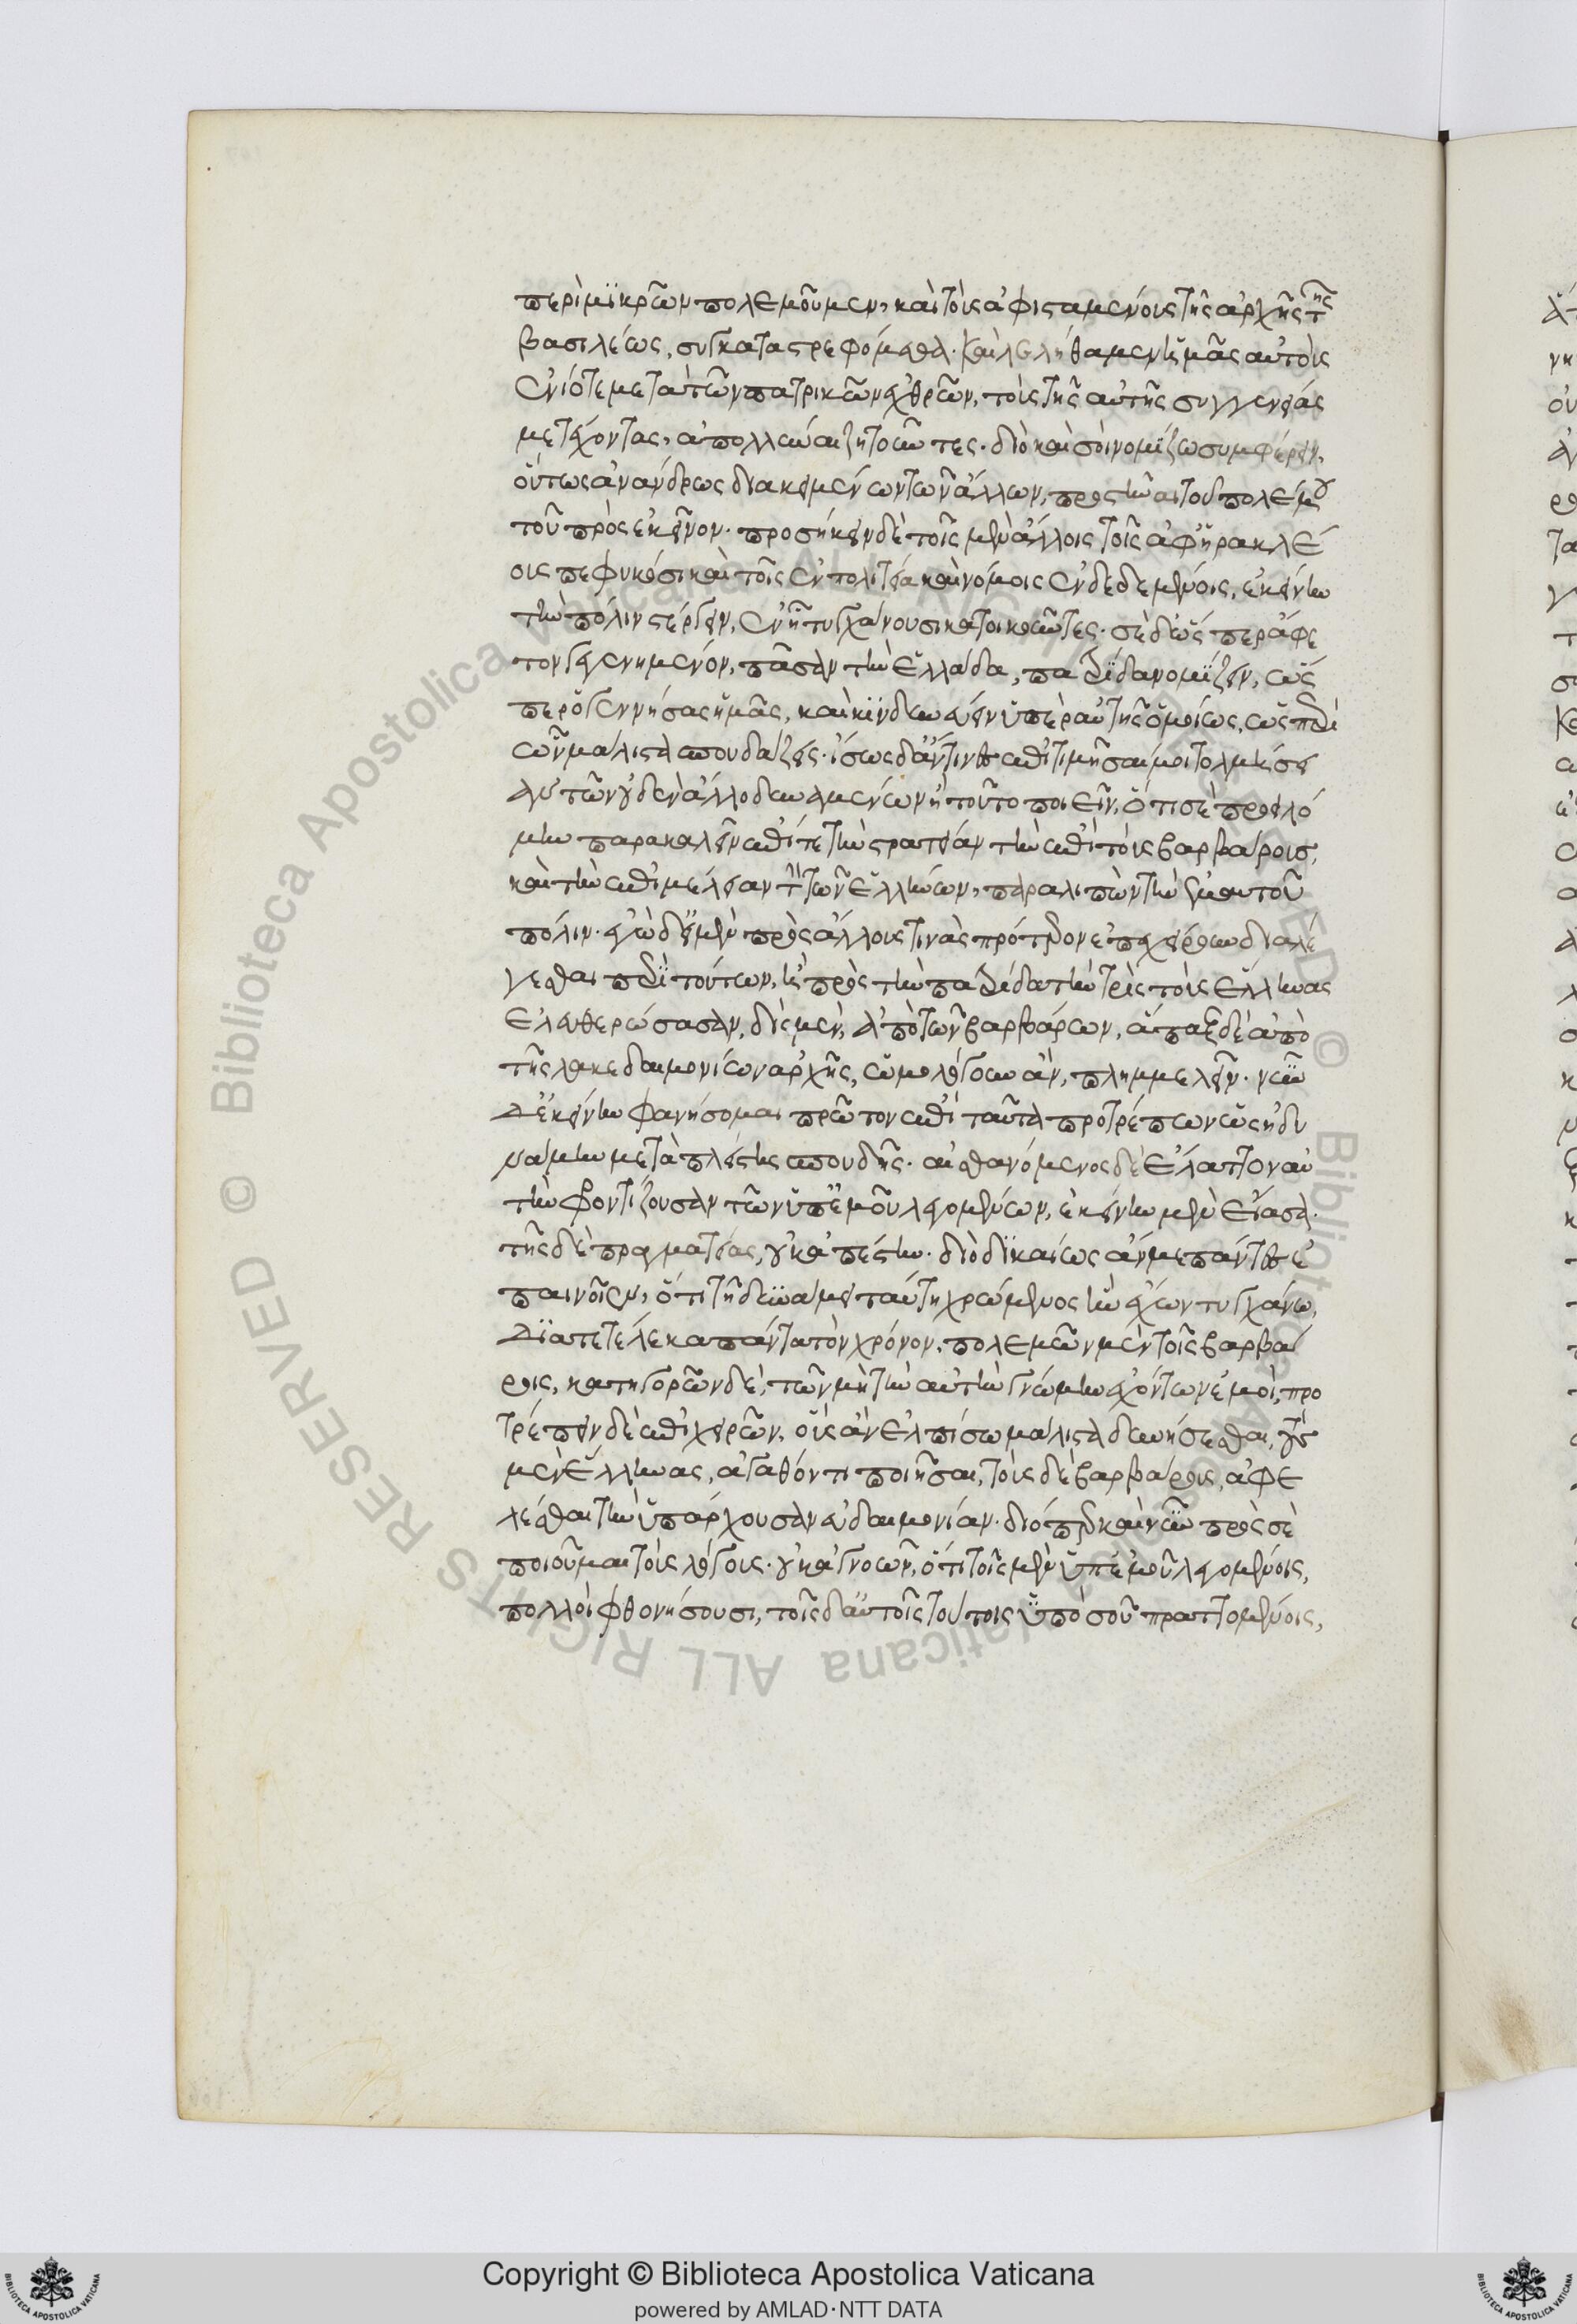 περὶ μικρῶν πολεμοῦμεν, καὶ τοὺς ἀφισταμένους τῆς ἀρχῆς τῆς
βασιλέως, συγκαταστρεφόμεθα. καὶ λελήθαμεν ἡμᾶς αὐτοὺς
ἐνίοτε μετὰ τῶν πατρικῶν ἐχθρῶν, τοὺς τῆς αὐτῆς συγγενείας
μετέχοντας, ἀπολλύναι ζητοῦντες. διὸ καὶ σοὶ νομίζω συμφέρειν,
οὕτως ἀνάνδρως διακειμένων τῶν ἄλλων, προστῆναι τοῦ πολέμου
τοῦ πρὸς ἐκεῖνον. προσήκειν δὲ τοῖς μὲν ἄλλοις τοῖς ἀφ' ἡρακλέ
ους πεφυκόσι καὶ τοῖς ἐν πολιτεία καὶ νόμοις ἐνδεδεμένοις, ἐκείνην
τὴν πόλιν στέργειν, ἐν ἧ τυγχάνουσι κατοικοῦντες. σὲ δ' ὥσπερ ἄφε
τον γεγενημένον, πᾶσαν τὴν ἑλλάδα, πατρίδα νομίζειν, ὥς
περ ὁ γεννήσας ἡμᾶς, καὶ κινδυνεύειν ὑπὲρ αὐτῆς ὁμοίως, ὥσπερ
ὧν μάλιστα σπουδάζεις. ἴσως δ' ἄν τινες ἐπιτιμῆσαί μοι τολμήσει
αν τῶν οὐδὲν ἄλλο δυναμένων ἢ τοῦτο ποιεῖν, ὅτι σὲ προειλό
μην παρακαλεῖν ἐπί τε τὴν στρατείαν τὴν ἐπὶ τοὺς βαρβάρους,
καὶ τὴν ἐπιμέλειαν τὴν τῶν ἑλλήνων, παραλιπὼν τὴν ἐμαυτοῦ
πόλιν. ἐγὼ δ' εἰ μὲν πρὸς ἄλλους τινὰς πρότερον ἐπεχείρουν διαλέ
γεσθαι περὶ τούτων, ἢ πρὸς τὴν πατρίδα τὴν τρὶς τοὺς ἕλληνας
ἐλευθερώσασαν, δὶς μὲν, ἀπὸ τῶν βαρβάρων, ἅπαξ δὲ ἀπὸ
τῆς λακεδαιμονίων ἀρχῆς, ὡμολόγουν ἂν, πλημμελεῖν. νῦν
δ' ἐκείνην φανήσομαι πρῶτον ἐπὶ ταῦτα προτρέπων ὡς ἠδυ
νάμην μετὰ πλείστης σπουδῆς. αἰσθανόμενος δὲ ἔλαττον αὐ
τὴν φροντίζουσαν τῶν ὑπ' ἐμοῦ λεγομένων, ἐκείνην μὲν εἴασα.
τῆς δὲ πραγματείας, οὐκ ἀπέστην. διὸ δικαίως ἄν με πάντες ἐ
παινοῖεν, ὅτι τῆ δυνάμει ταύτη χρώμενος ἣν ἔχων τυγχάνω,
διατετέλεκα πάντα τὸν χρόνον, πολεμῶν μὲν τοῖς βαρβά
ροις, κατηγορῶν δὲ, τῶν μὴ τὴν αὐτὴν γνώμην ἐχόντων ἐμοὶ, προ
τρέπειν δὲ ἐπιχειρῶν, οὓς ἂν ἐλπίσω μάλιστα δυνήσεσθαι, τοὺς
μὲν ἕλληνας, ἀγαθόν τι ποιῆσαι, τοὺς δὲ βαρβάρους, ἀφε
λέσθαι τὴν ὑπάρχουσαν εὐδαιμονίαν. διόπερ καὶ νῦν πρὸς σὲ
ποιοῦμαι τοὺς λόγους. οὐκ ἀγνοῶν, ὅτι τοῖς μὲν ὑπ' ἐμοῦ λεγομένοις,
πολλοὶ φθονήσουσι, τοῖς δ' αὐτοῖς τούτοις ὑπὸ σοῦ πραττομένοις,
Copyright © Biblioteca Apostolica Vaticana
powered by AMLAD·NTT DATA